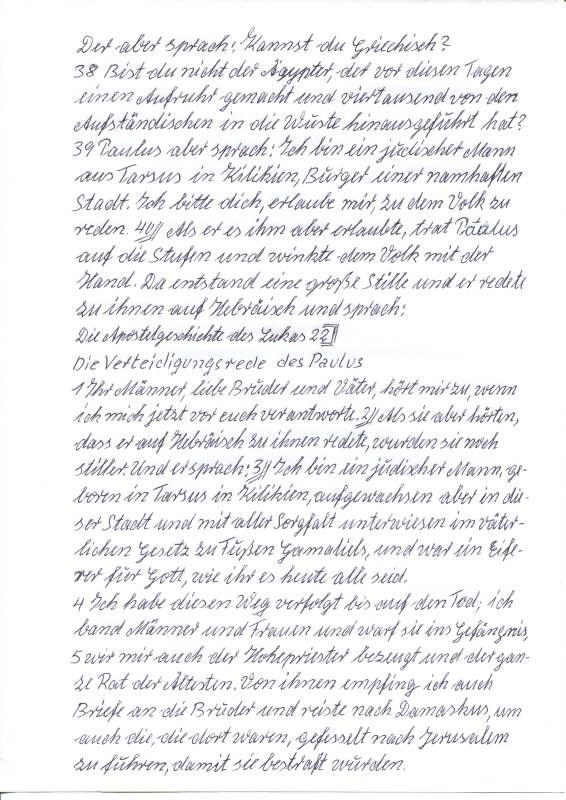 Der aber sprach: Kannst du Griechisch?
38 Bist du nicht der Ägypter, der vor diesen Tagen
einen Aufruhr gemacht und viertausend von den
Aufständischen in die Wüste hinausgeführt hat?
39 Paulus aber sprach: Ich bin ein jüdischer Mann
aus Tarsus in Zilikien, Bürger einer namhaften
Stadt. Ich bitte dich, erlaube mir, zu dem Volk zu
reden. 40 Als er es ihm aber erlaubte, trat Paulus
auf die Stufen und winkte dem Volk mit der
Hand. Da entstand eine große Stille und er redete
zu ihnen auf Hebräisch und sprach:
Die Apostelgeschichte des Lukas 22
Die Verteidigungsrede des Paulus
1 Ihr Männer, liebe Brüder und Väter, hört mir zu, wenn
ich mich jetzt vor euch verantworte. 2 Als sie aber hörten,
dass er auf Hebräisch zu ihnen redete, wurden sie noch
stiller. Und er sprach: 3 Ich bin ein jüdischer Mann, ge-
boren in Tarsus in Zilikien, aufgewachsen aber in die-
ser Stadt und mit aller Sorgfalt unterwiesen im väter-
lichen Gesetz zu Füßen Gamaliels, und war ein Eife-
rer für Gott, wie ihr es heute alle seid.
4 Ich habe diesen Weg verfolgt bis auf den Tod; ich
band Männer und Frauen und warf sie ins Gefängnis,
5 wir mir auch der Hohepriester bezeugt und der gan-
ze Rat der Ältesten. Von ihnen empfing ich auch
Briefe an die Brüder und reiste nach Damaskus, um
auch die, die dort waren, gefesselt nach Jerusalem
zu führen, damit sie bestraft würden.